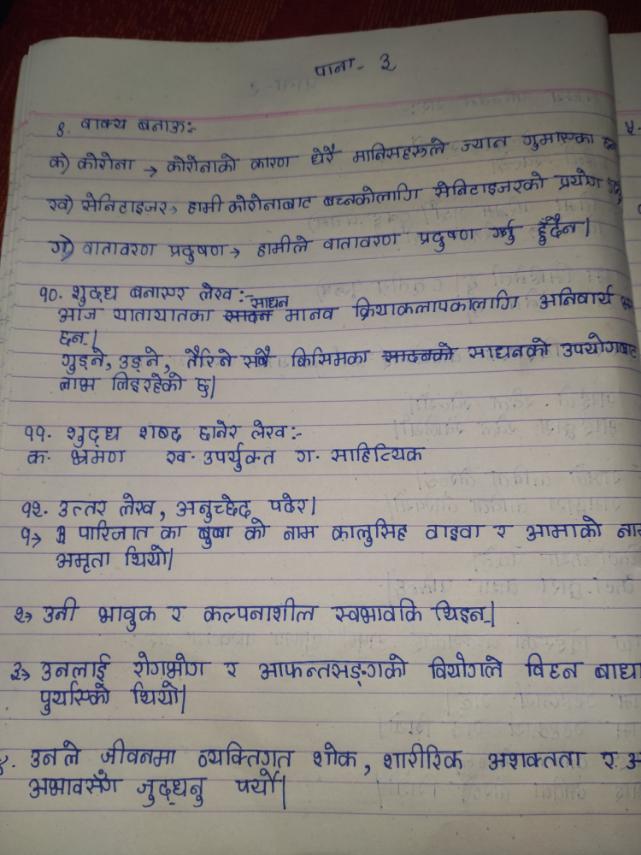 पाना - ३
९. वाक्य बनाऊ:-
क) कोरोना → कोरोनाको कारण धेरै मानिसहरुले ज्यान गुमाएका
ख) सेनिटाइजर → हामी कोरोनाबाट बच्नकोलागि सेनिटाइजरको प्रयोग
ग) वातावरण प्रदुषण → हामीले वातावरण प्रदुषण गर्नु हुँदैन।
१०. शुद्ध बनाएर लेख:-
आज यातायातका साधन मानव क्रियाकलापकालागि अनिवार्य
छन्।
गुड्ने, उड्ने, तैरिने सबै किसिमका साधनको उपयोगबाट
लाभ लिइरहेको छ।
११. शुद्ध शब्द छानेर लेख:-
क. भ्रमण ख. उपर्युक्त ग. साहित्यिक
१२. उत्तर लेख, अनुच्छेद पढेर।
१→ पारिजात का बुबा को नाम कालुसिह वाइवा र आमाको
अमृता थियो।
२→ उनी भावुक र कल्पनाशील स्वभावकि थिइन्।
३→ उनलाई रोगभोग र आफन्तसङ्गको वियोगले बिहन बाधा
पुर्याएको थियो।
उनले जीवनमा व्यक्तिगत शोक, शारीरिक अशक्तता र
अभावसँग जुद्धनु पर्यो।